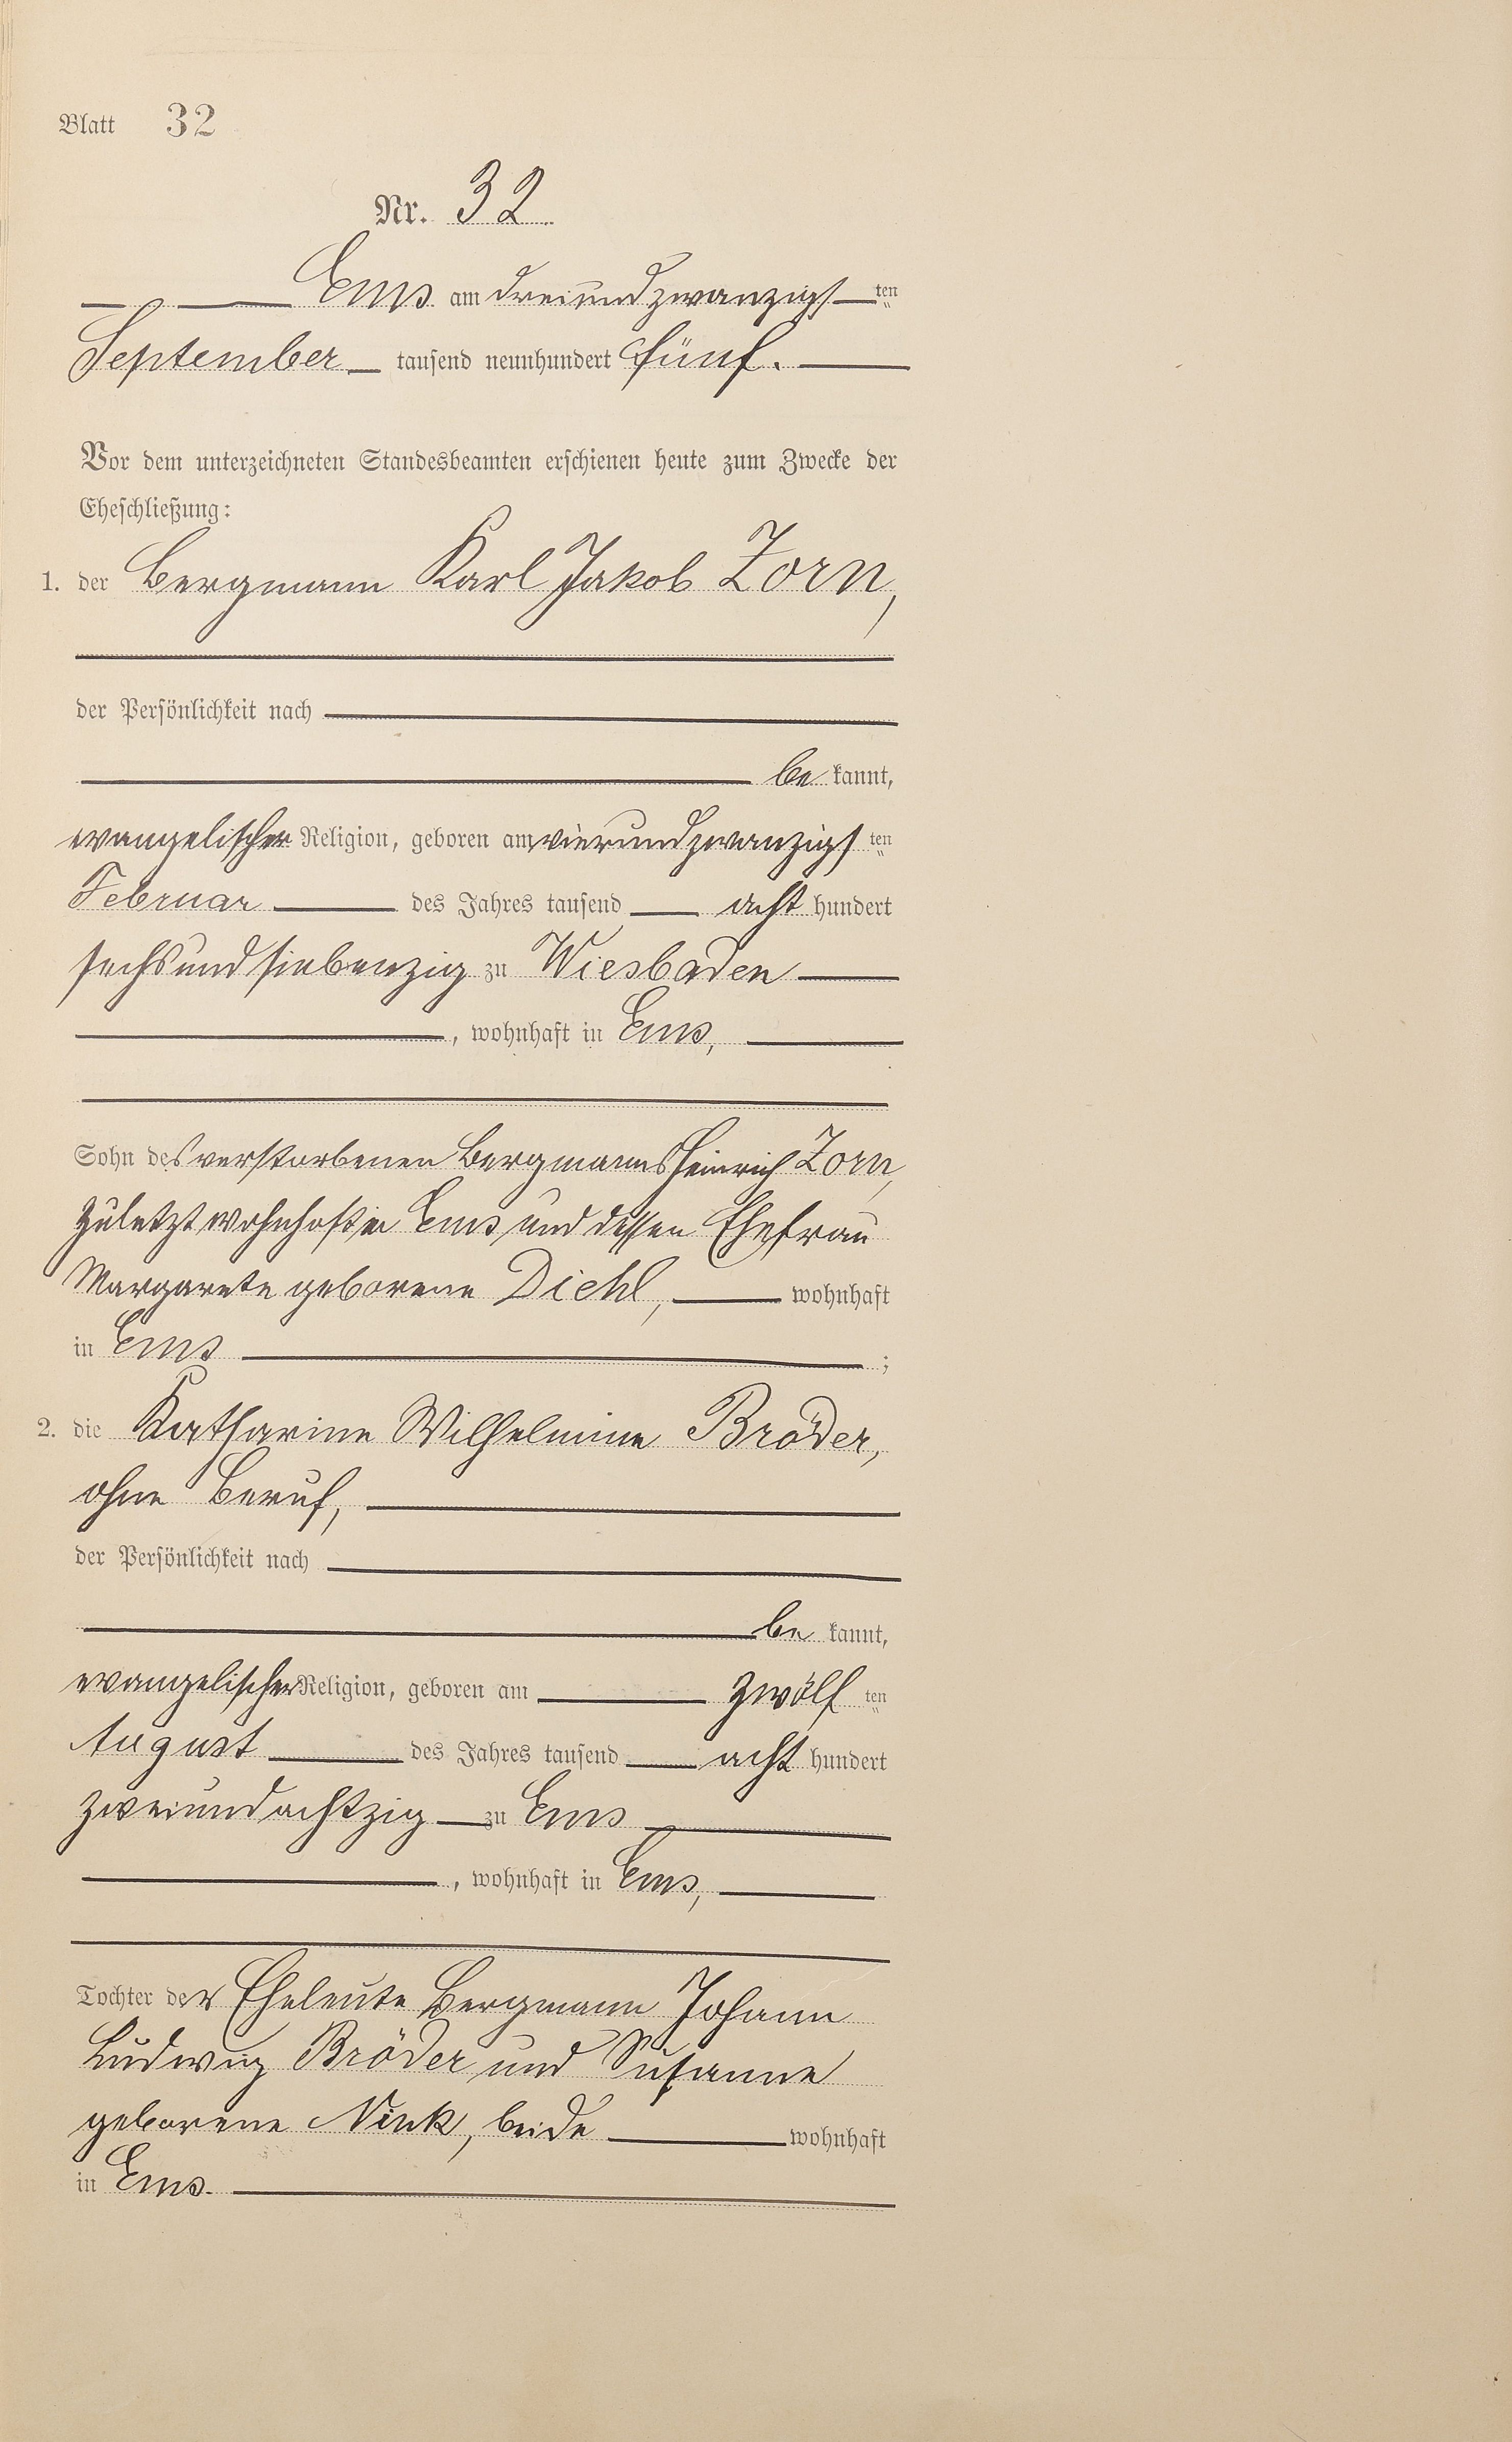 Blatt 32
Nr. 32
Ems am dreiundzwanzigsten
September tausend neunhundert fünf.
Vor dem unterzeichneten Standesbeamten erschienen heute zum Zwecke der
Eheschließung:
1. der Bergmann Karl Jakob Zorn,
der Persönlichkeit nach
be kannt,
evangelischer Religion, geboren am vierundzwanzigsten
Februar des Jahres tausend acht hundert
sechsundsiebenzig zu Wiesbaden
, wohnhaft in Ems,
Sohn des verstorbenen Bergmanns Heinrich Zorn,
zuletzt wohnhaft in Ems und dessen Ehefrau
Margarete geborene Diehl, wohnhaft
in Ems ;
2. die Katharine Wilhelmine Bröder,
ohne Beruf,
der Persönlichkeit nach
be kannt,
evangelischer Religion, geboren am zwölf ten
August des Jahres tausend acht hundert
zweiundachtzig zu Ems
, wohnhaft in Ems,
Tochter der Eheleute Bergmann Johann
Ludwig Bröder und Susanne
geborene Nink, beide wohnhaft
in Ems.